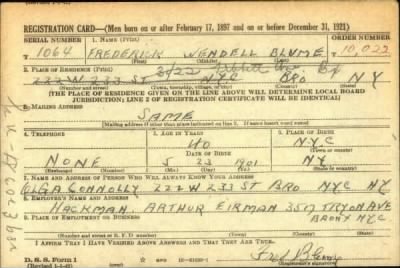 REGISTRATION CARD—(Men born on or after February 17, 1897 and on or before December 31, 1921)
SERIAL NUMBER 1. NAME (Print) ORDER NUMBER
T 1064 FREDERICK WENDELL BLUME 10,022
(First) (Middle) (Last)
2. PLACE OF RESIDENCE (Print) 3422
222 W 233 ST N.Y.C BRO NY
(Number and street) (Town, township, village, or city) (County) (State)
[THE PLACE OF RESIDENCE GIVEN ON THE LINE ABOVE WILL DETERMINE LOCAL BOARD
JURISDICTION; LINE 2 OF REGISTRATION CERTIFICATE WILL BE IDENTICAL]
3. MAILING ADDRESS
SAME
[Mailing address if other than place indicated on line 2. If same insert word same]
4. TELEPHONE 5. AGE IN YEARS 6. PLACE OF BIRTH
40 N.Y.C
DATE OF BIRTH (Town or county)
NONE 5 23 1901 NY
(Exchange) (Number) (Mo.) (Day) (Yr.) (State or country)
7. NAME AND ADDRESS OF PERSON WHO WILL ALWAYS KNOW YOUR ADDRESS
OLGA CONNOLLY 222 W 233 ST BRO NYC NY
8. EMPLOYER'S NAME AND ADDRESS
HACKMAN. ARTHUR
9. PLACE OF EMPLOYMENT OR BUSINESS BRONX NYC
(Number and street or R. F. D. number) (Town) (County) (State)
I AFFIRM THAT I HAVE VERIFIED ABOVE ANSWERS AND THAT THEY ARE TRUE.
D. S. S. Form 1
(Revised 1-1-42) (over)